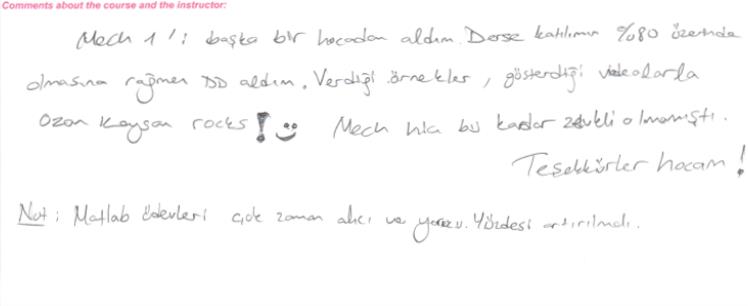 Comments about the course and the instructor:
Mech 1'i başka bir hocadan aldım. Derse katılımın %80 üzerinde
olmasına rağmen DD aldım. Verdiği örnekler, gösterdiği videolarla
Ozan Keysan rocks! :)
Mech hiç bu kadar zevkli olmamıştı.
Teşekkürler hocam!
Not: Matlab ödevleri çok zaman alıcı ve yorucu. Yüzdesi artırılmalı.